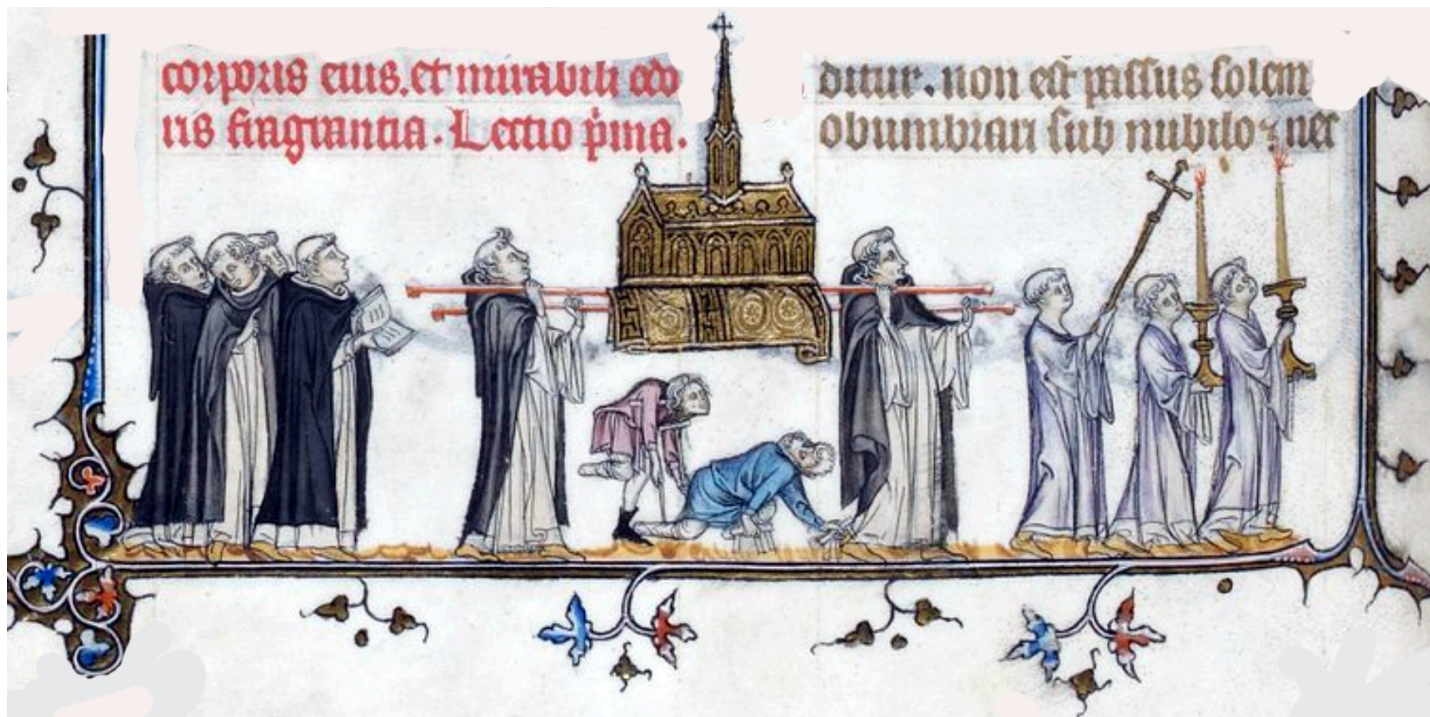 corporis eius. et mirabili odo
ris fragrantia. Lectio p̄ima.
ditur. non est passus solem
obumbrari sub nubilo ⁊ nec